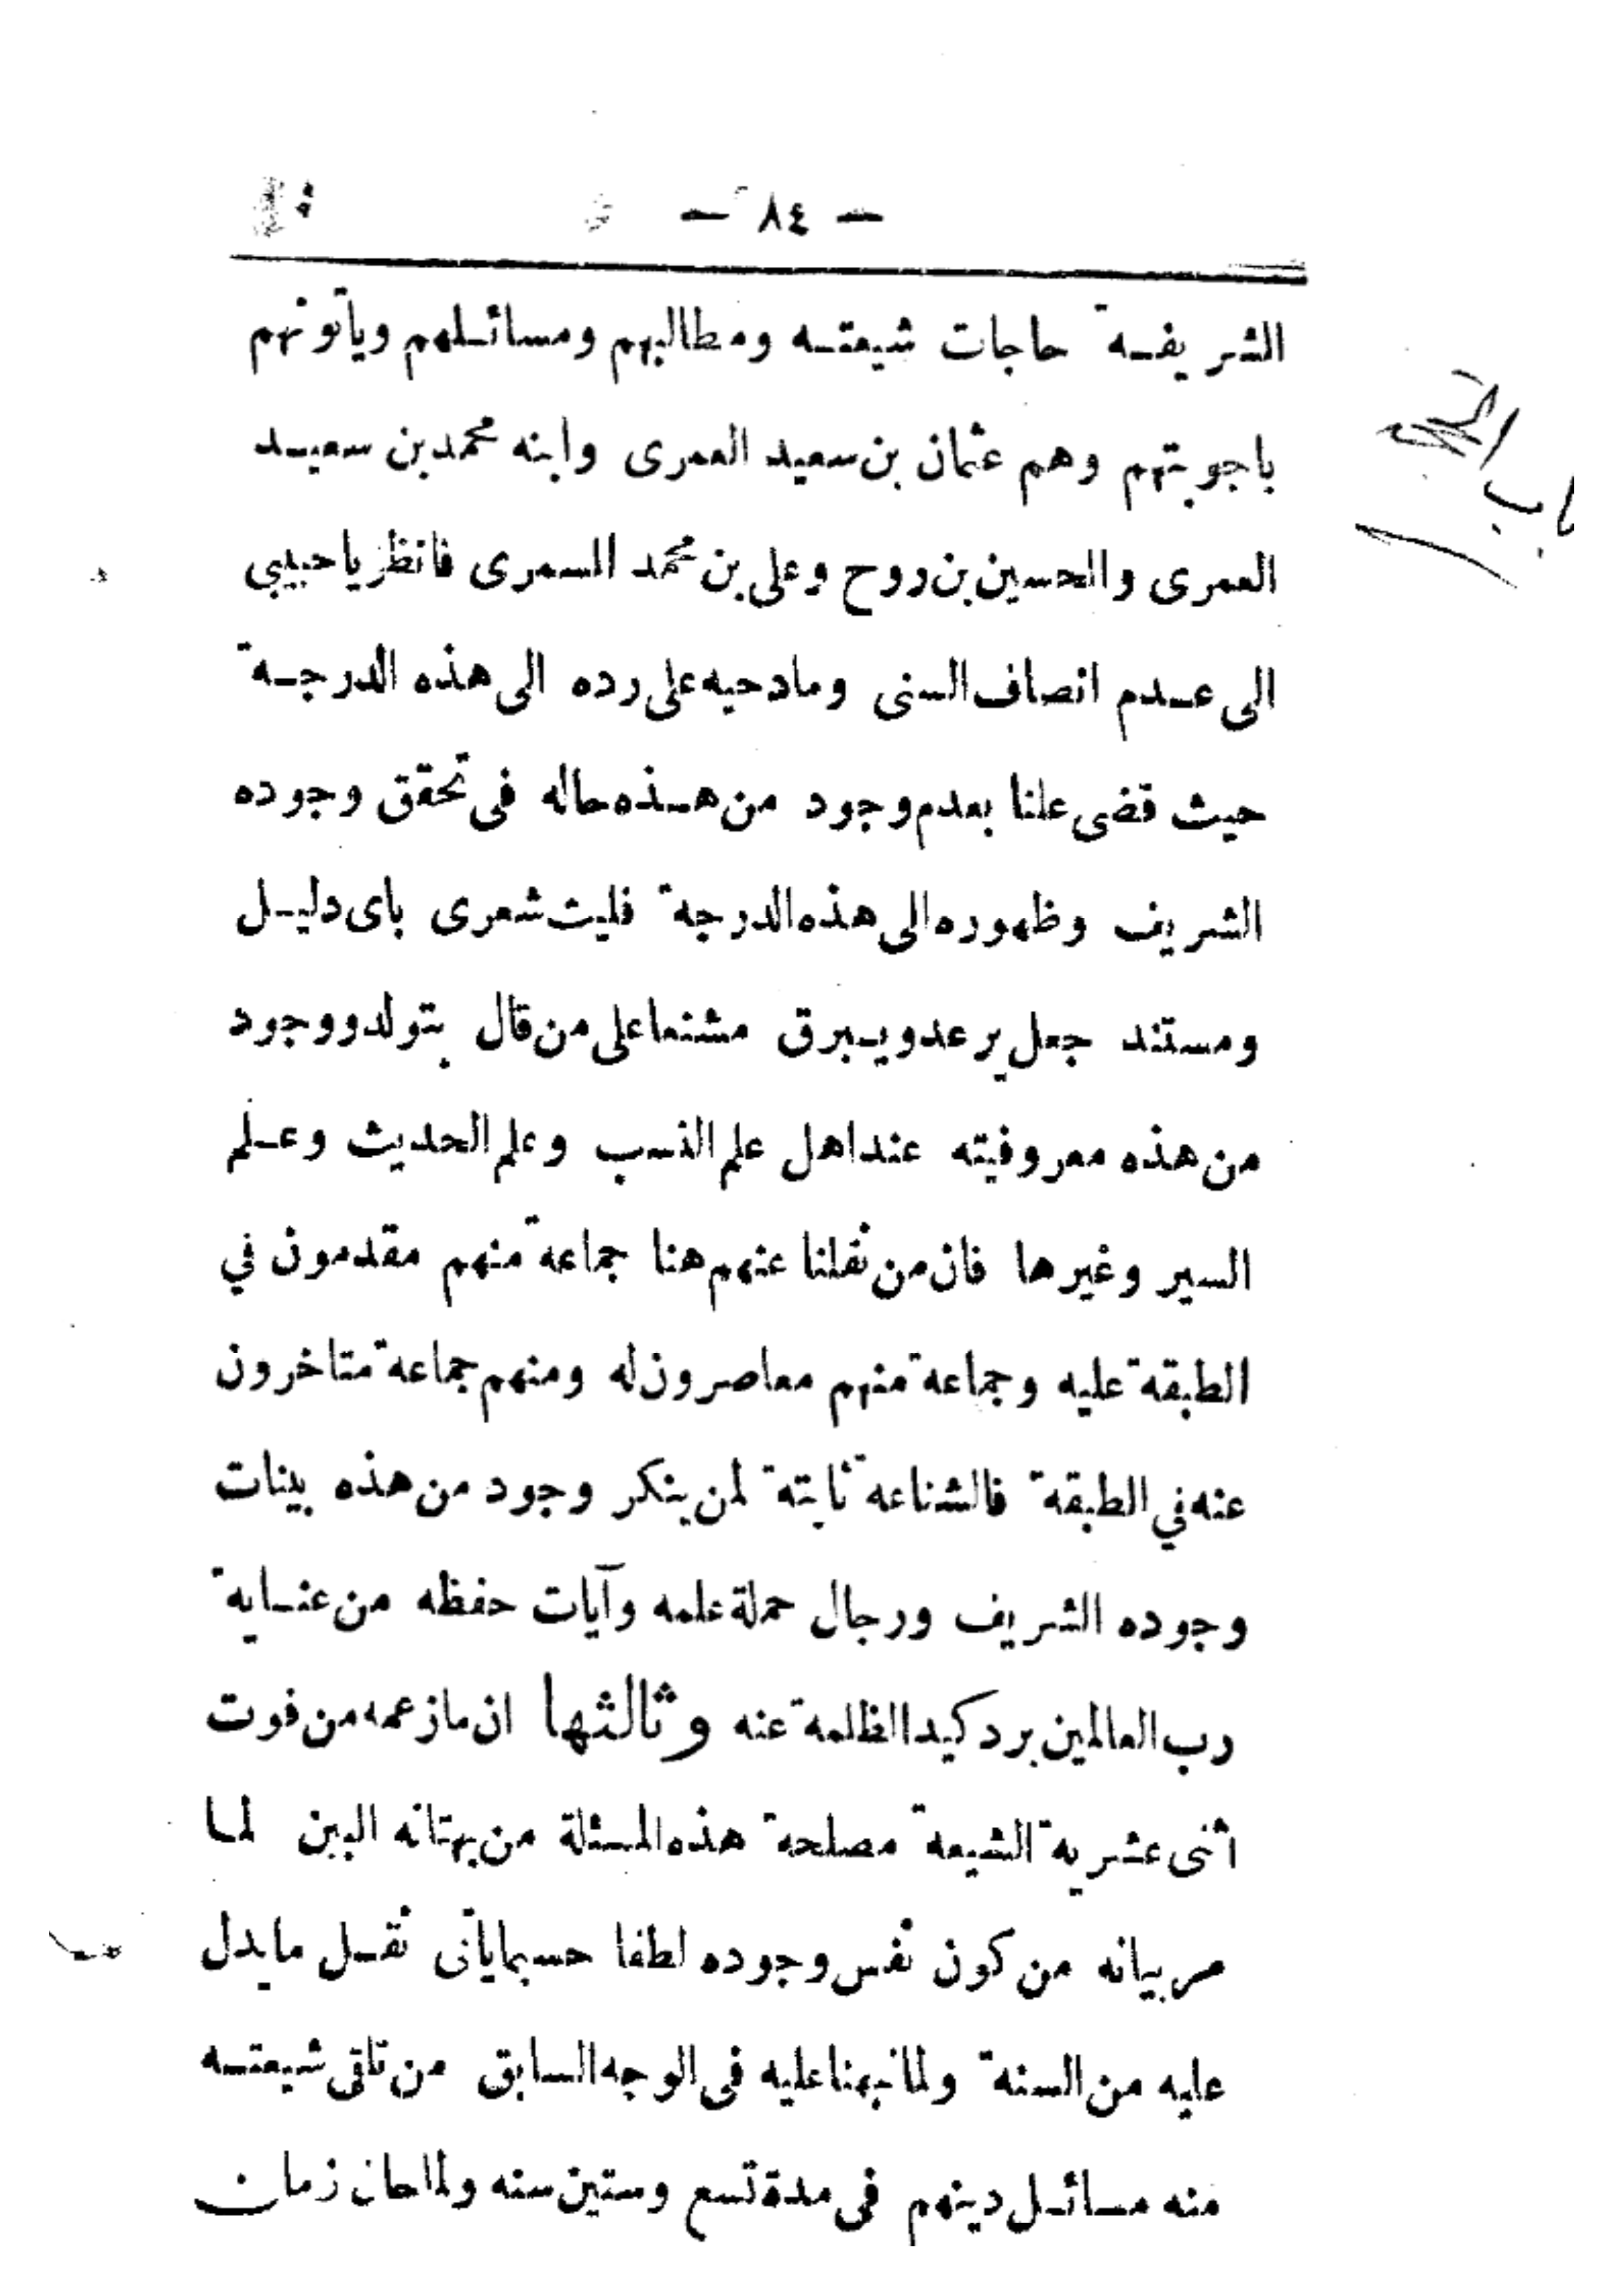 — ٨٤ —
الشريفة حاجات شيعته ومطالبهم ومسائلهم وياتونهم
باجوبتهم وهم عثمان بن سعيد العمرى وابنه محمد بن سعيد
العمرى والحسين بن روح وعلى بن محمد السمرى فانظر يا حبيبي
الى عدم انصاف السنى ومادحيه على رده الى هذه الدرجة
حيث قضى علنا بعدم وجود من هذه حاله فى تحقق وجوده
الشريف وظهوره الى هذه الدرجة فليت شعرى باى دليل
ومستند جعل يرعد ويبرق مشنعا على من قال بتولد ووجود
من هذه معروفيته عند اهل علم النسب وعلم الحديث وعلم
السير وغيرها فان من نقلنا عنهم هنا جماعة منهم مقدمون في
الطبقة عليه وجماعة منهم معاصرون له ومنهم جماعة متاخرون
عنه في الطبقة فالشناعة ثابتة لمن ينكر وجود من هذه بينات
وجوده الشريف ورجال حملة علمه وآيات حفظه من عناية
رب العالمين برد كيد الظلمة عنه وثالثها ان ما زعمه من فوت
اثنى عشرية الشيعة مصلحة هذه المسئلة من بهتانه البين لما
مر بيانه من كون نفس وجوده لطفا حسبما ياتى نقل ما يدل
عليه من السنة ولما نبهنا عليه فى الوجه السابق من تلقى شيعته
منه مسائل دينهم فى مدة تسع وستين سنه ولما حان زمان